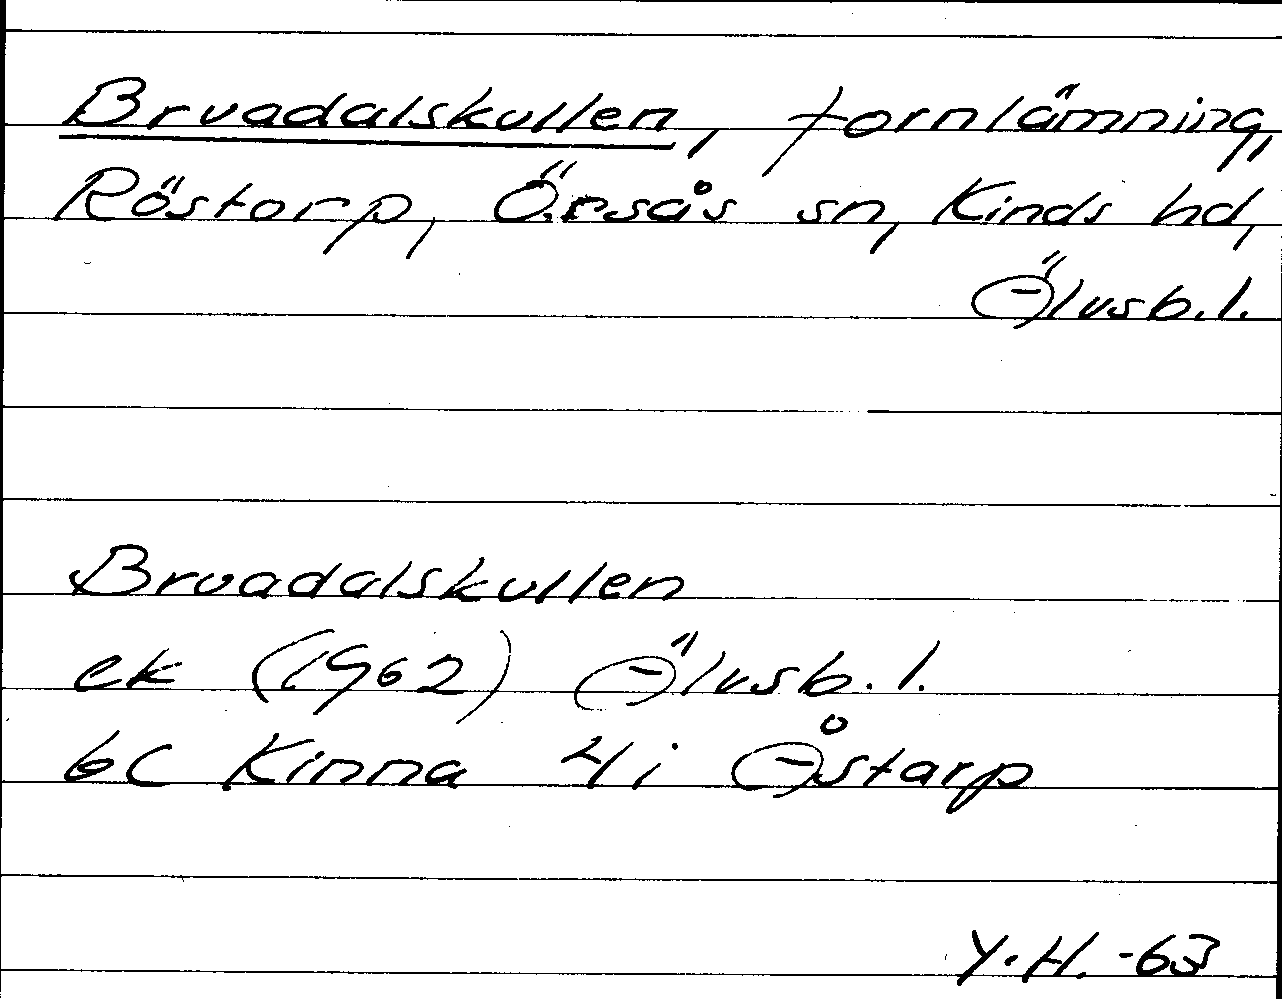 Bruadalskullen, fornlämning,
Röstorp, Örsås sn, Kinds hd,
Älvsb. l.
Bruadalskullen
ek (1962) Älvsb. l.
6C Kinna 4i Åstarp
Y.H. -63